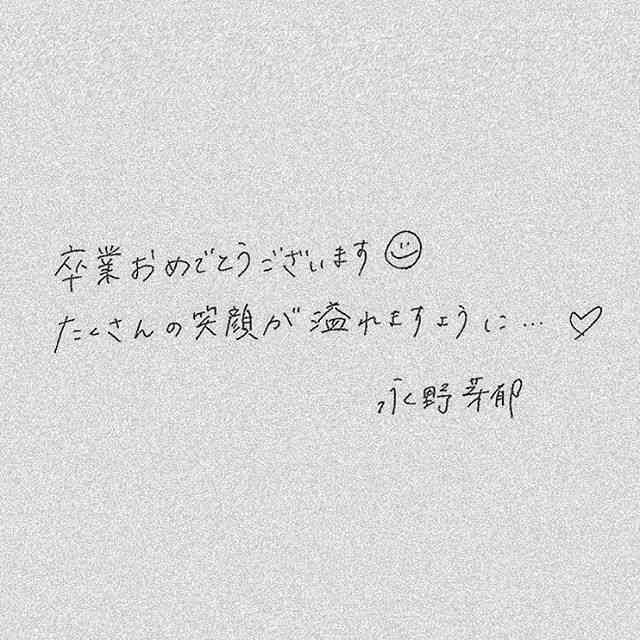 卒業おめでとうございます☺
たくさんの笑顔が溢れますように… ♡
永野芽郁